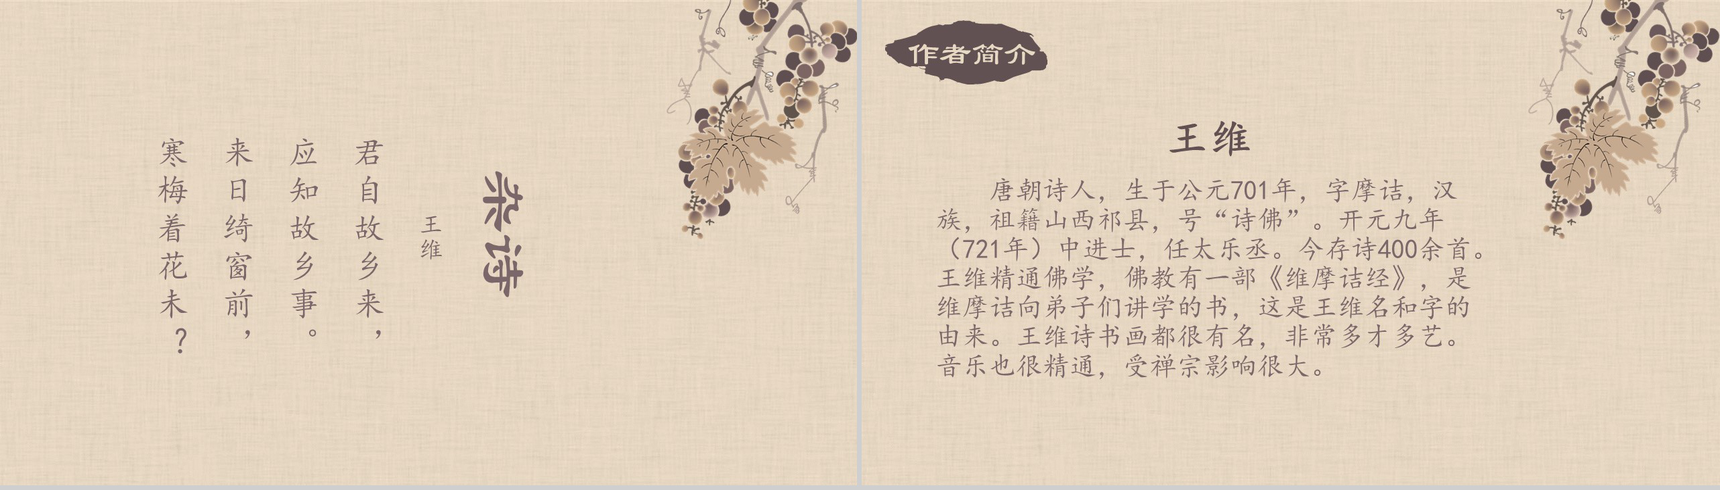 杂诗
王维
君自故乡来，
应知故乡事。
来日绮窗前，
寒梅着花未？
作者简介
王维
唐朝诗人，生于公元701年，字摩诘，汉
族，祖籍山西祁县，号“诗佛”。开元九年
（721年）中进士，任太乐丞。今存诗400余首。
王维精通佛学，佛教有一部《维摩诘经》，是
维摩诘向弟子们讲学的书，这是王维名和字的
由来。王维诗书画都很有名，非常多才多艺。
音乐也很精通，受禅宗影响很大。